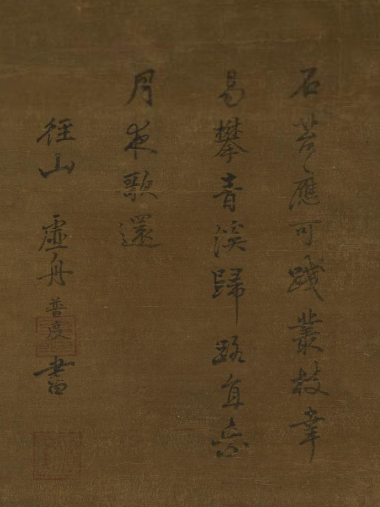 石苔應可踐叢枝幸
易攀青溪歸路直乘
月夜歌還
徑山 虛舟普度書